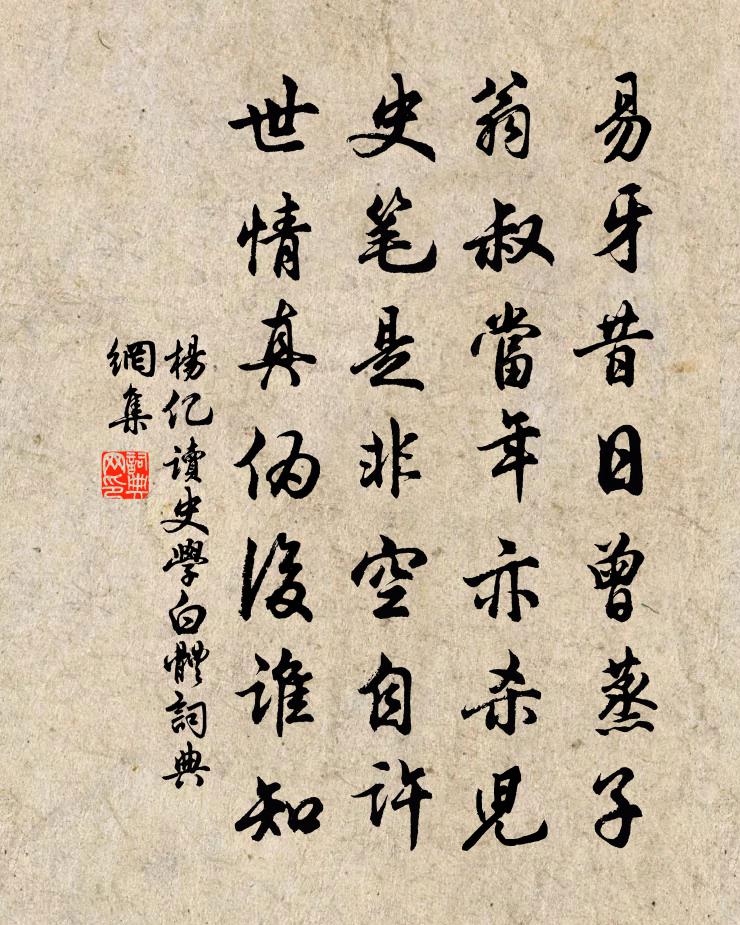 易牙昔日曾蒸子
翁叔當年亦杀兒
史笔是非空自許
世情真伪復誰知
楊亿讀史學白體詞典
網集
詞典
网印